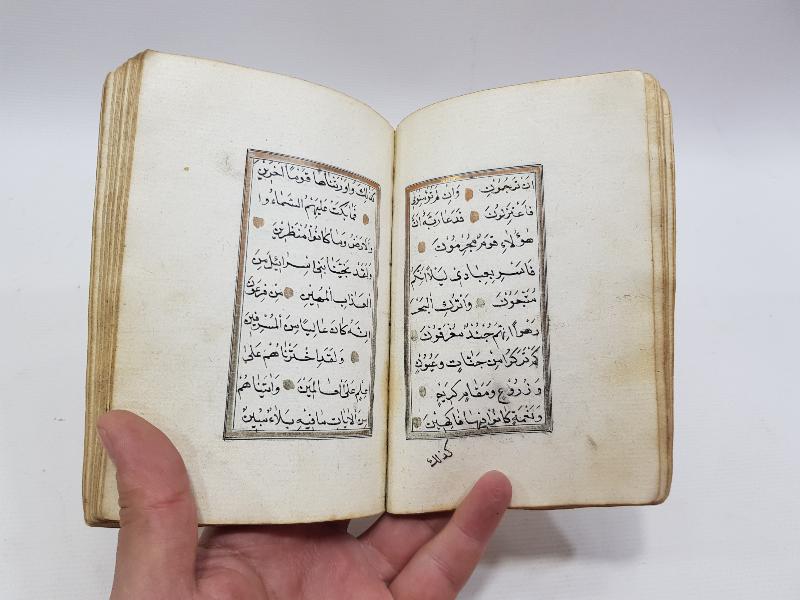 ان ترجمون وان لم تؤمنوا لي
فاعتزلون فدعا ربه ان
هؤلاء قوم مجرمون
فاسر بعبادي ليلا انكم
متبعون واترك البحر
رهوا انهم جند مغرقون
كم تركوا من جنات وعيون
وزروع ومقام كريم
ونعمة كانوا فيها فاكهين
كذلك
كذلك واورثناها قوما اخرين
فما بكت عليهم السماء وا
والارض وما كانوا منظرين
ولقد نجينا بني اسرائيل من
العذاب المهين من فرعون
انه كان عاليا من المسرفين
ولقد اخترناهم على
علم على العالمين واتيناهم
من الايات ما فيه بلاء مبين